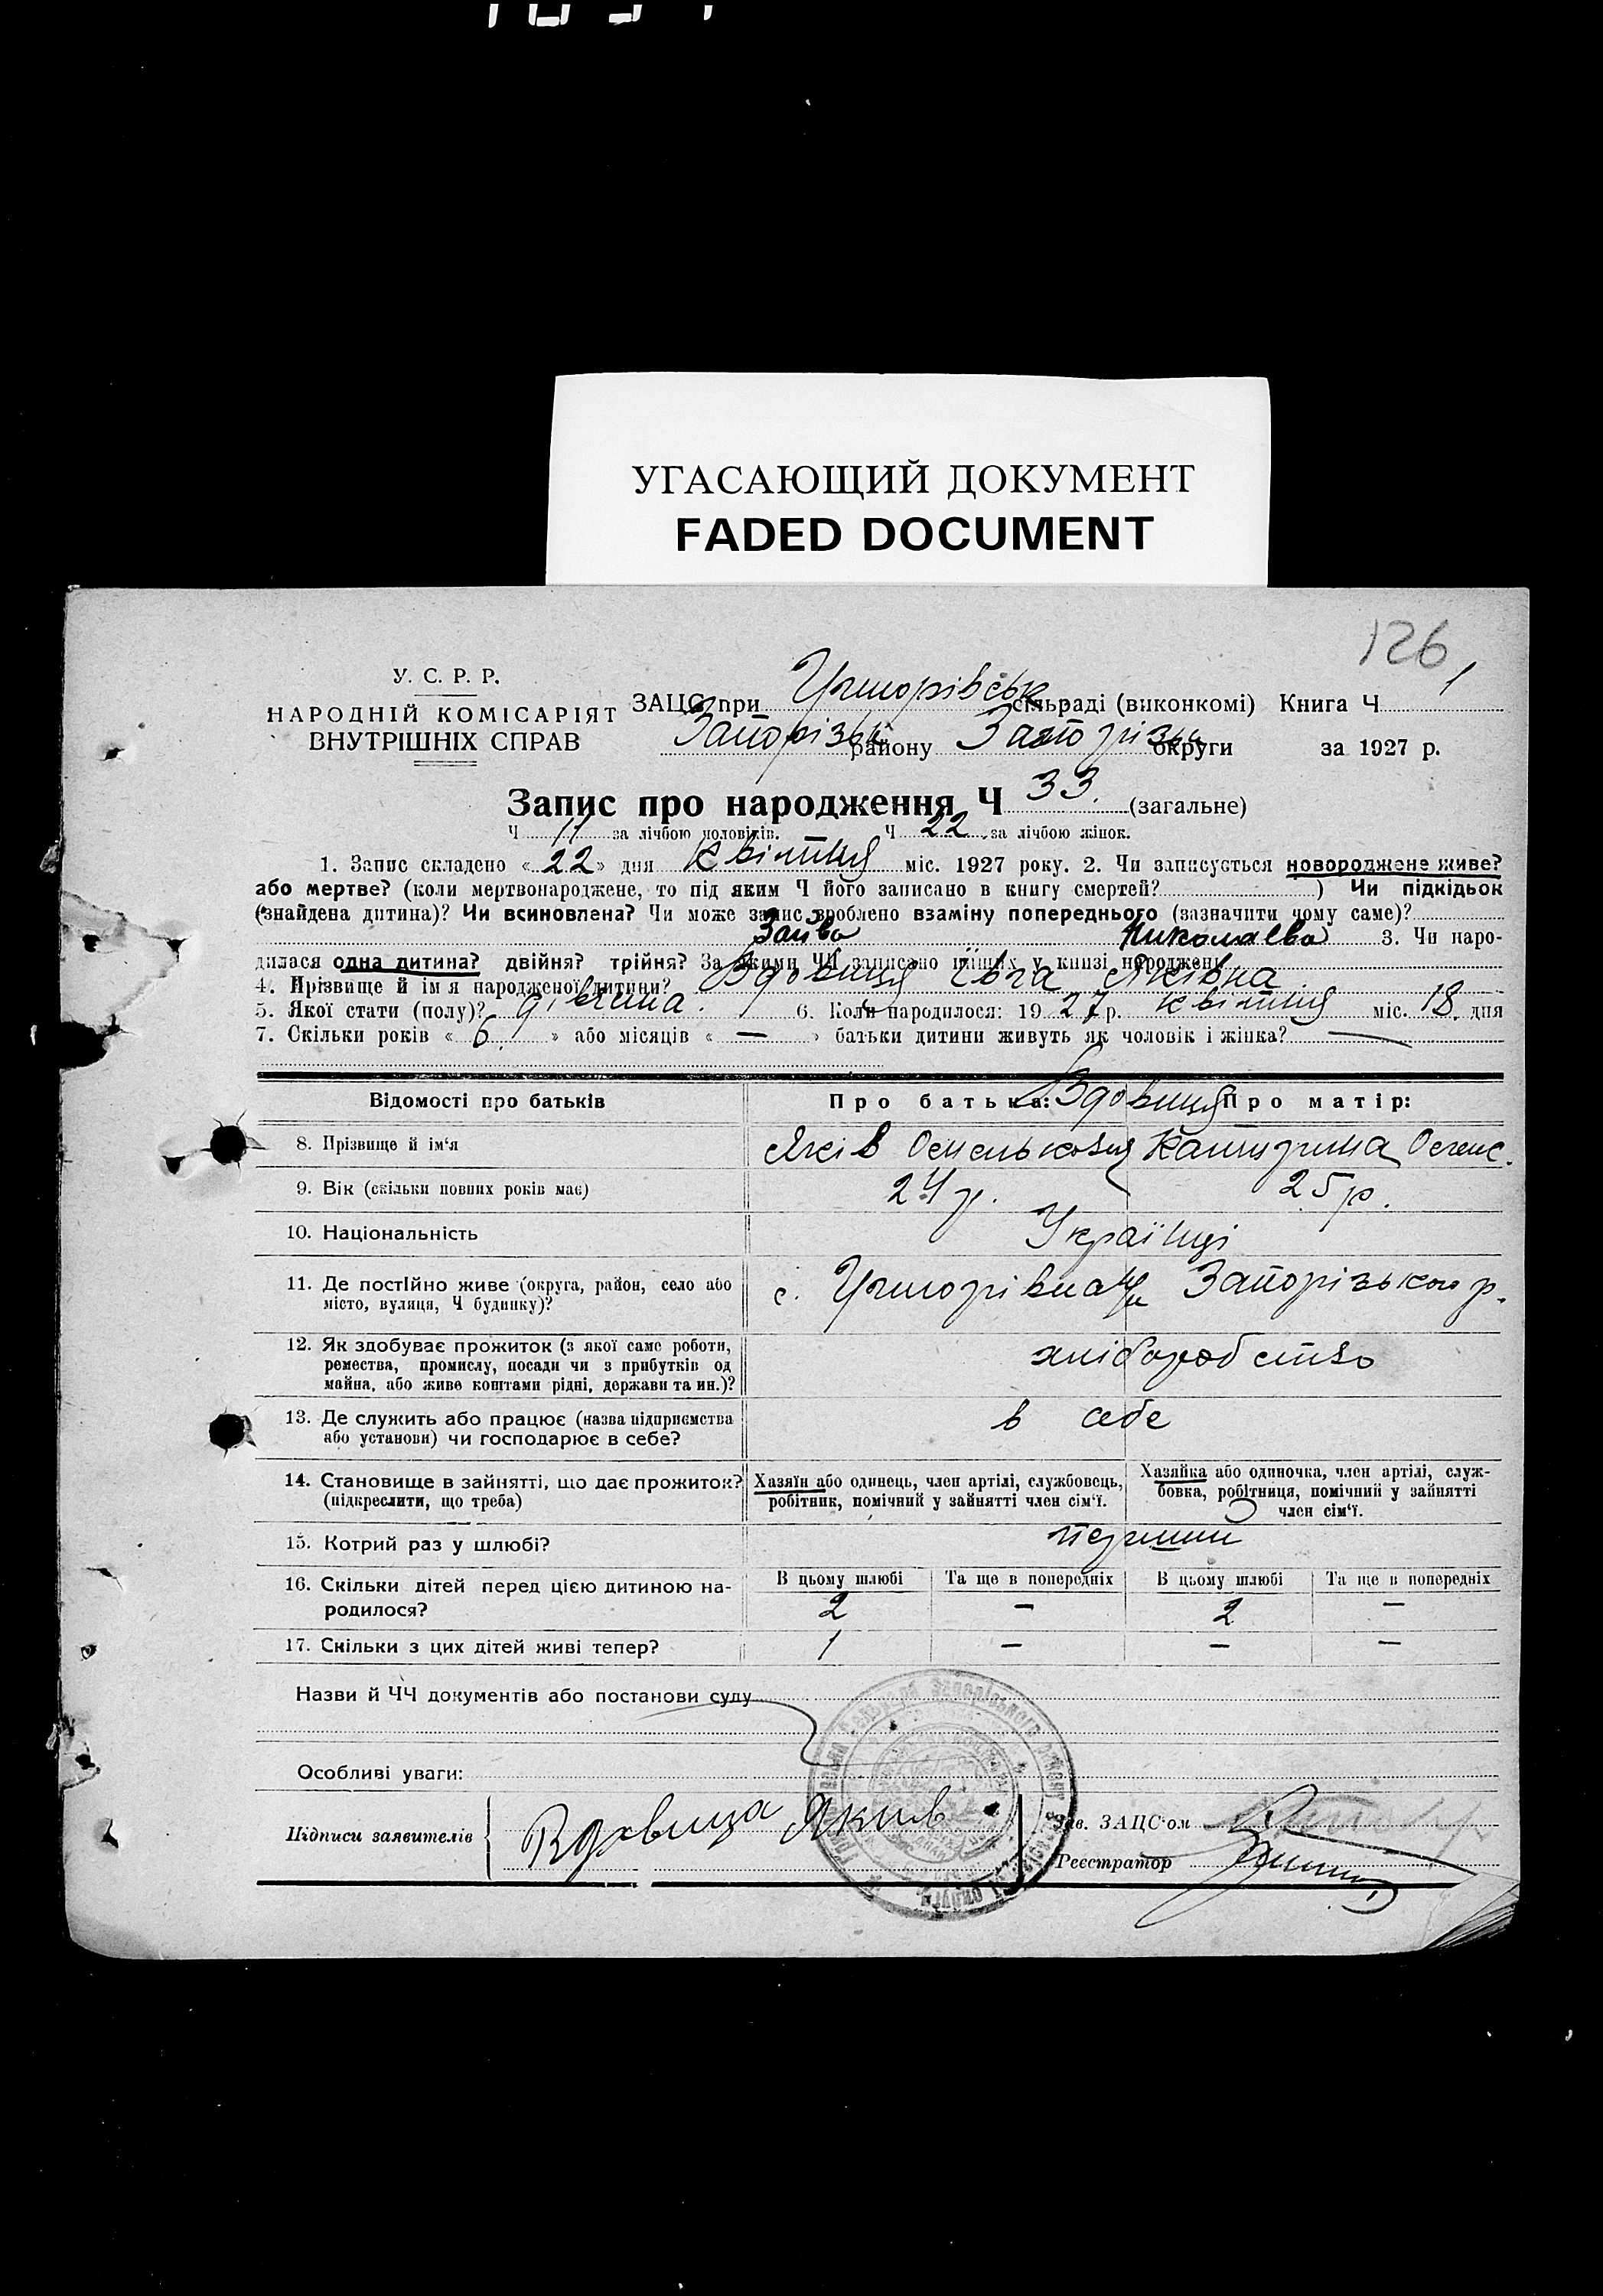 УГАСАЮЩИЙ ДОКУМЕНТ
FADED DOCUMENT
126
У. С. Р. Р.
НАРОДНІЙ КОМІСАРІЯТ
ВНУТРІШНІХ СПРАВ
ЗАЦС при сільраді (виконкомі) Книга Ч 1
Запорізьк району Запорізьк округи за 1927 р.
Запис про народження Ч 33. (загальне)
Ч 11 за лічбою чоловіків. Ч 22 за лічбою жінок.
1. Запис складено « 22 » дня квітня міс. 1927 року. 2. Чи записується новороджене живе?
або мертве? (коли мертвонароджене, то під яким Ч його записано в книгу смертей? ) Чи підкідьок
(знайдена дитина)? Чи всиновлена? Чи може запис зроблено взаміну попереднього (зазначити чому саме)?
3. Чи наро-
дилася одна дитина? двійня? трійня? За якими ЧЧ записано інших у книзі народжень
4. Прізвище й ім'я народженої дитини? Вдовиця Ївга Яківна
5. Якої стати (полу)? дівчина. 6. Коли народилося: 19 27 р. квітня міс. 18. дня
7. Скільки років « 6 » або місяців « — » батьки дитини живуть як чоловік і жінка? —
Відомості про батьків
Про батька: Вдовиця Про матір:
8. Прізвище й ім'я Яків Катерина
9. Вік (скільки повних років має) 24 р. 25 р.
10. Національність Українці
11. Де постійно живе (округа, район, село або
місто, вулиця, Ч будинку)? с. Запорізького р.
12. Як здобуває прожиток (з якої саме роботи,
ремества, промислу, посади чи з прибутків од
майна, або живе коштами рідні, держави та ин.)? хліборобство
13. Де служить або працює (назва підприємства
або установи) чи господарює в себе? в себе
14. Становище в зайнятті, що дає прожиток?
(підкреслити, що треба)
Хазяїн або одинець, член артілі, службовець,
робітник, помічний у зайнятті член сім'ї.
Хазяйка або одиночка, член артілі, служ-
бовка, робітниця, помічний у зайнятті
член сім'ї.
15. Котрий раз у шлюбі? перший
16. Скільки дітей перед цією дитиною на-
родилося?
В цьому шлюбі Та ще в попередніх В цьому шлюбі Та ще в попередніх
2 — 2 —
17. Скільки з цих дітей живі тепер? 1 — — —
Назви й ЧЧ документів або постанови суду
Особливі уваги:
Підписи заявителів Вдовица Якив
Зав. ЗАЦС'ом
Реєстратор